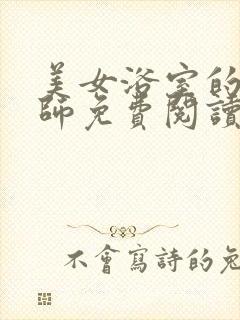 美女浴室的
師免費閱讀
不會寫詩的兔